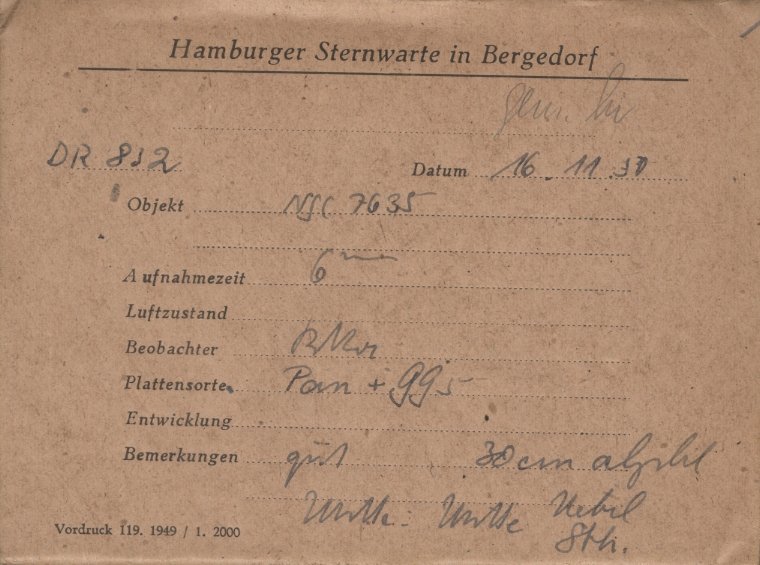 Hamburger Sternwarte in Bergedorf
DR 832
Datum 16. 11. 50
Objekt NGC 7635
Aufnahmezeit 6
Luftzustand
Beobachter
Plattensorte Pan + 99
Entwicklung
Bemerkungen gut 30 cm
Mitte - Mitte Nebel
Vordruck 119. 1949 / 1. 2000